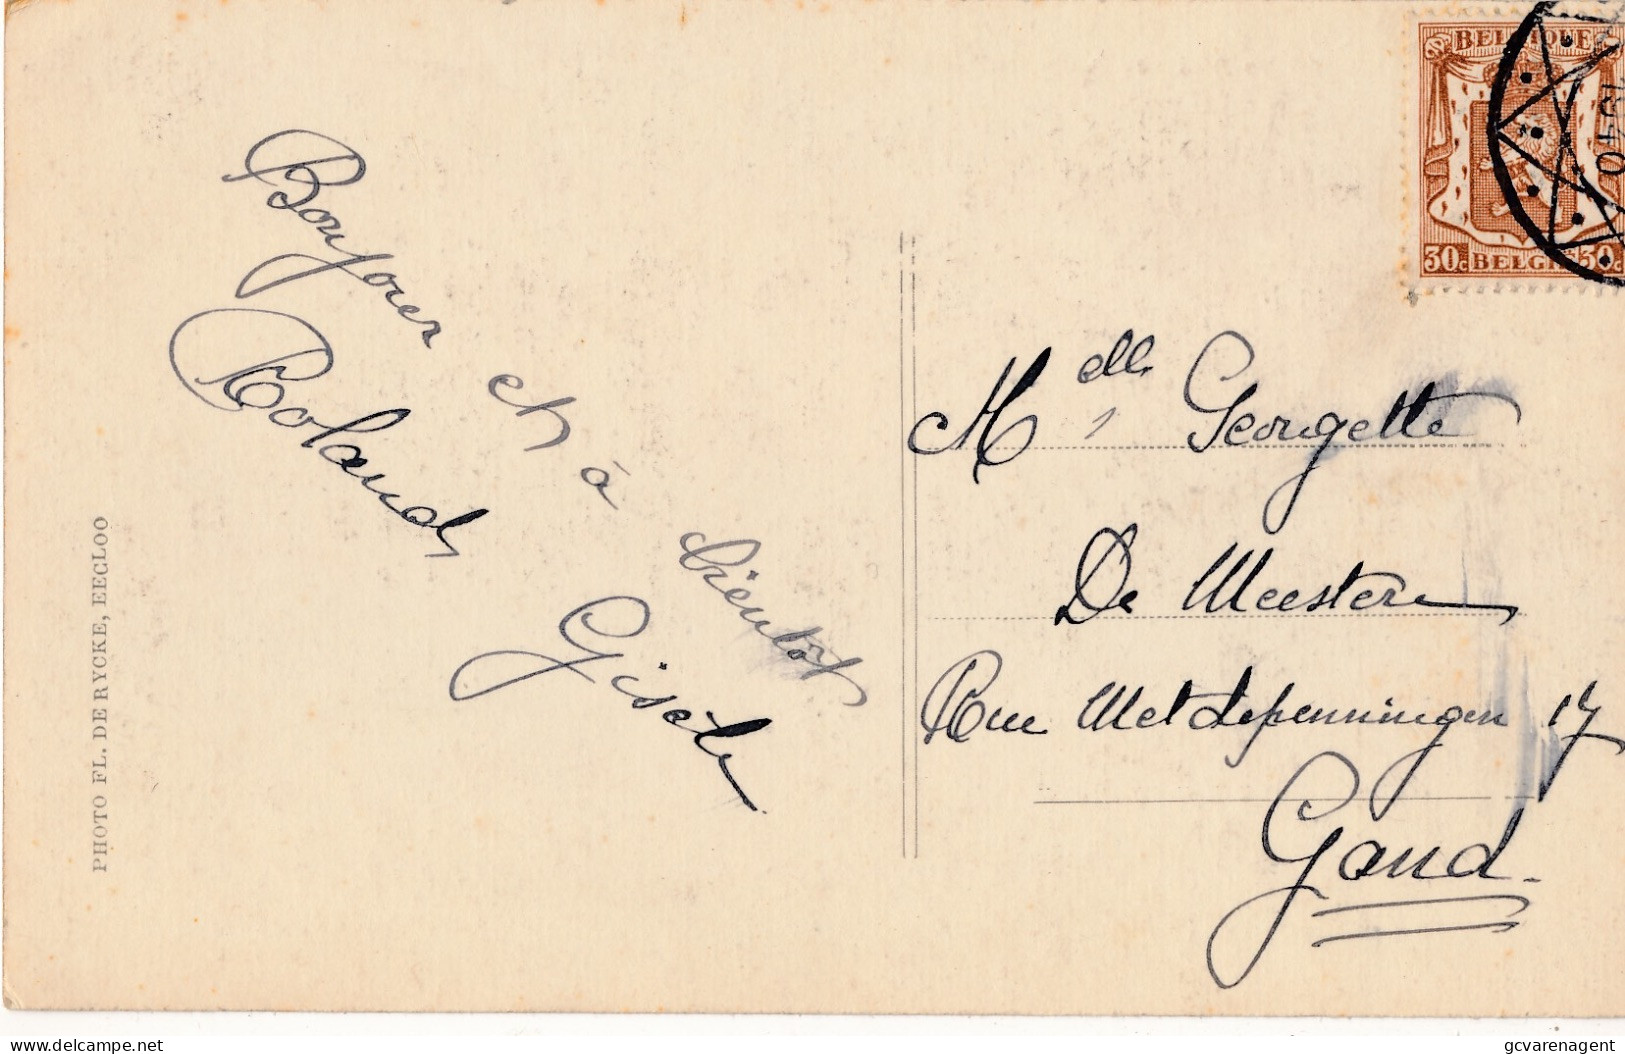 Bonjour et à bientot
Roland
Gisèle
PHOTO FL. DE RYCKE, EECLOO
BELGIQUE
1940
30c BELGIË 30c
Mdlle Georgette
De Meester
Rue Metdepenningen 17
Gand.
delcampe.net
gcvarenagent